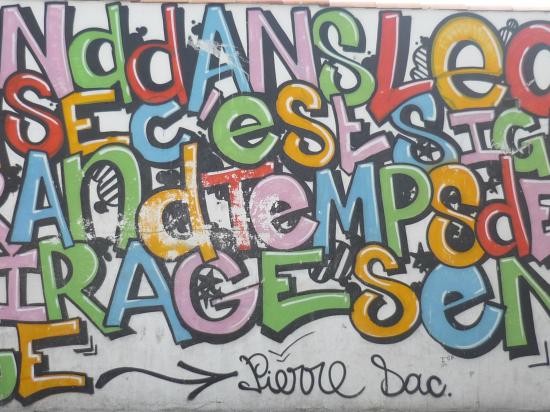 Nd dANS Le
SE C'eSt SIG
RANd TeMPS de
IRAGES eN
E Pierre Dac.